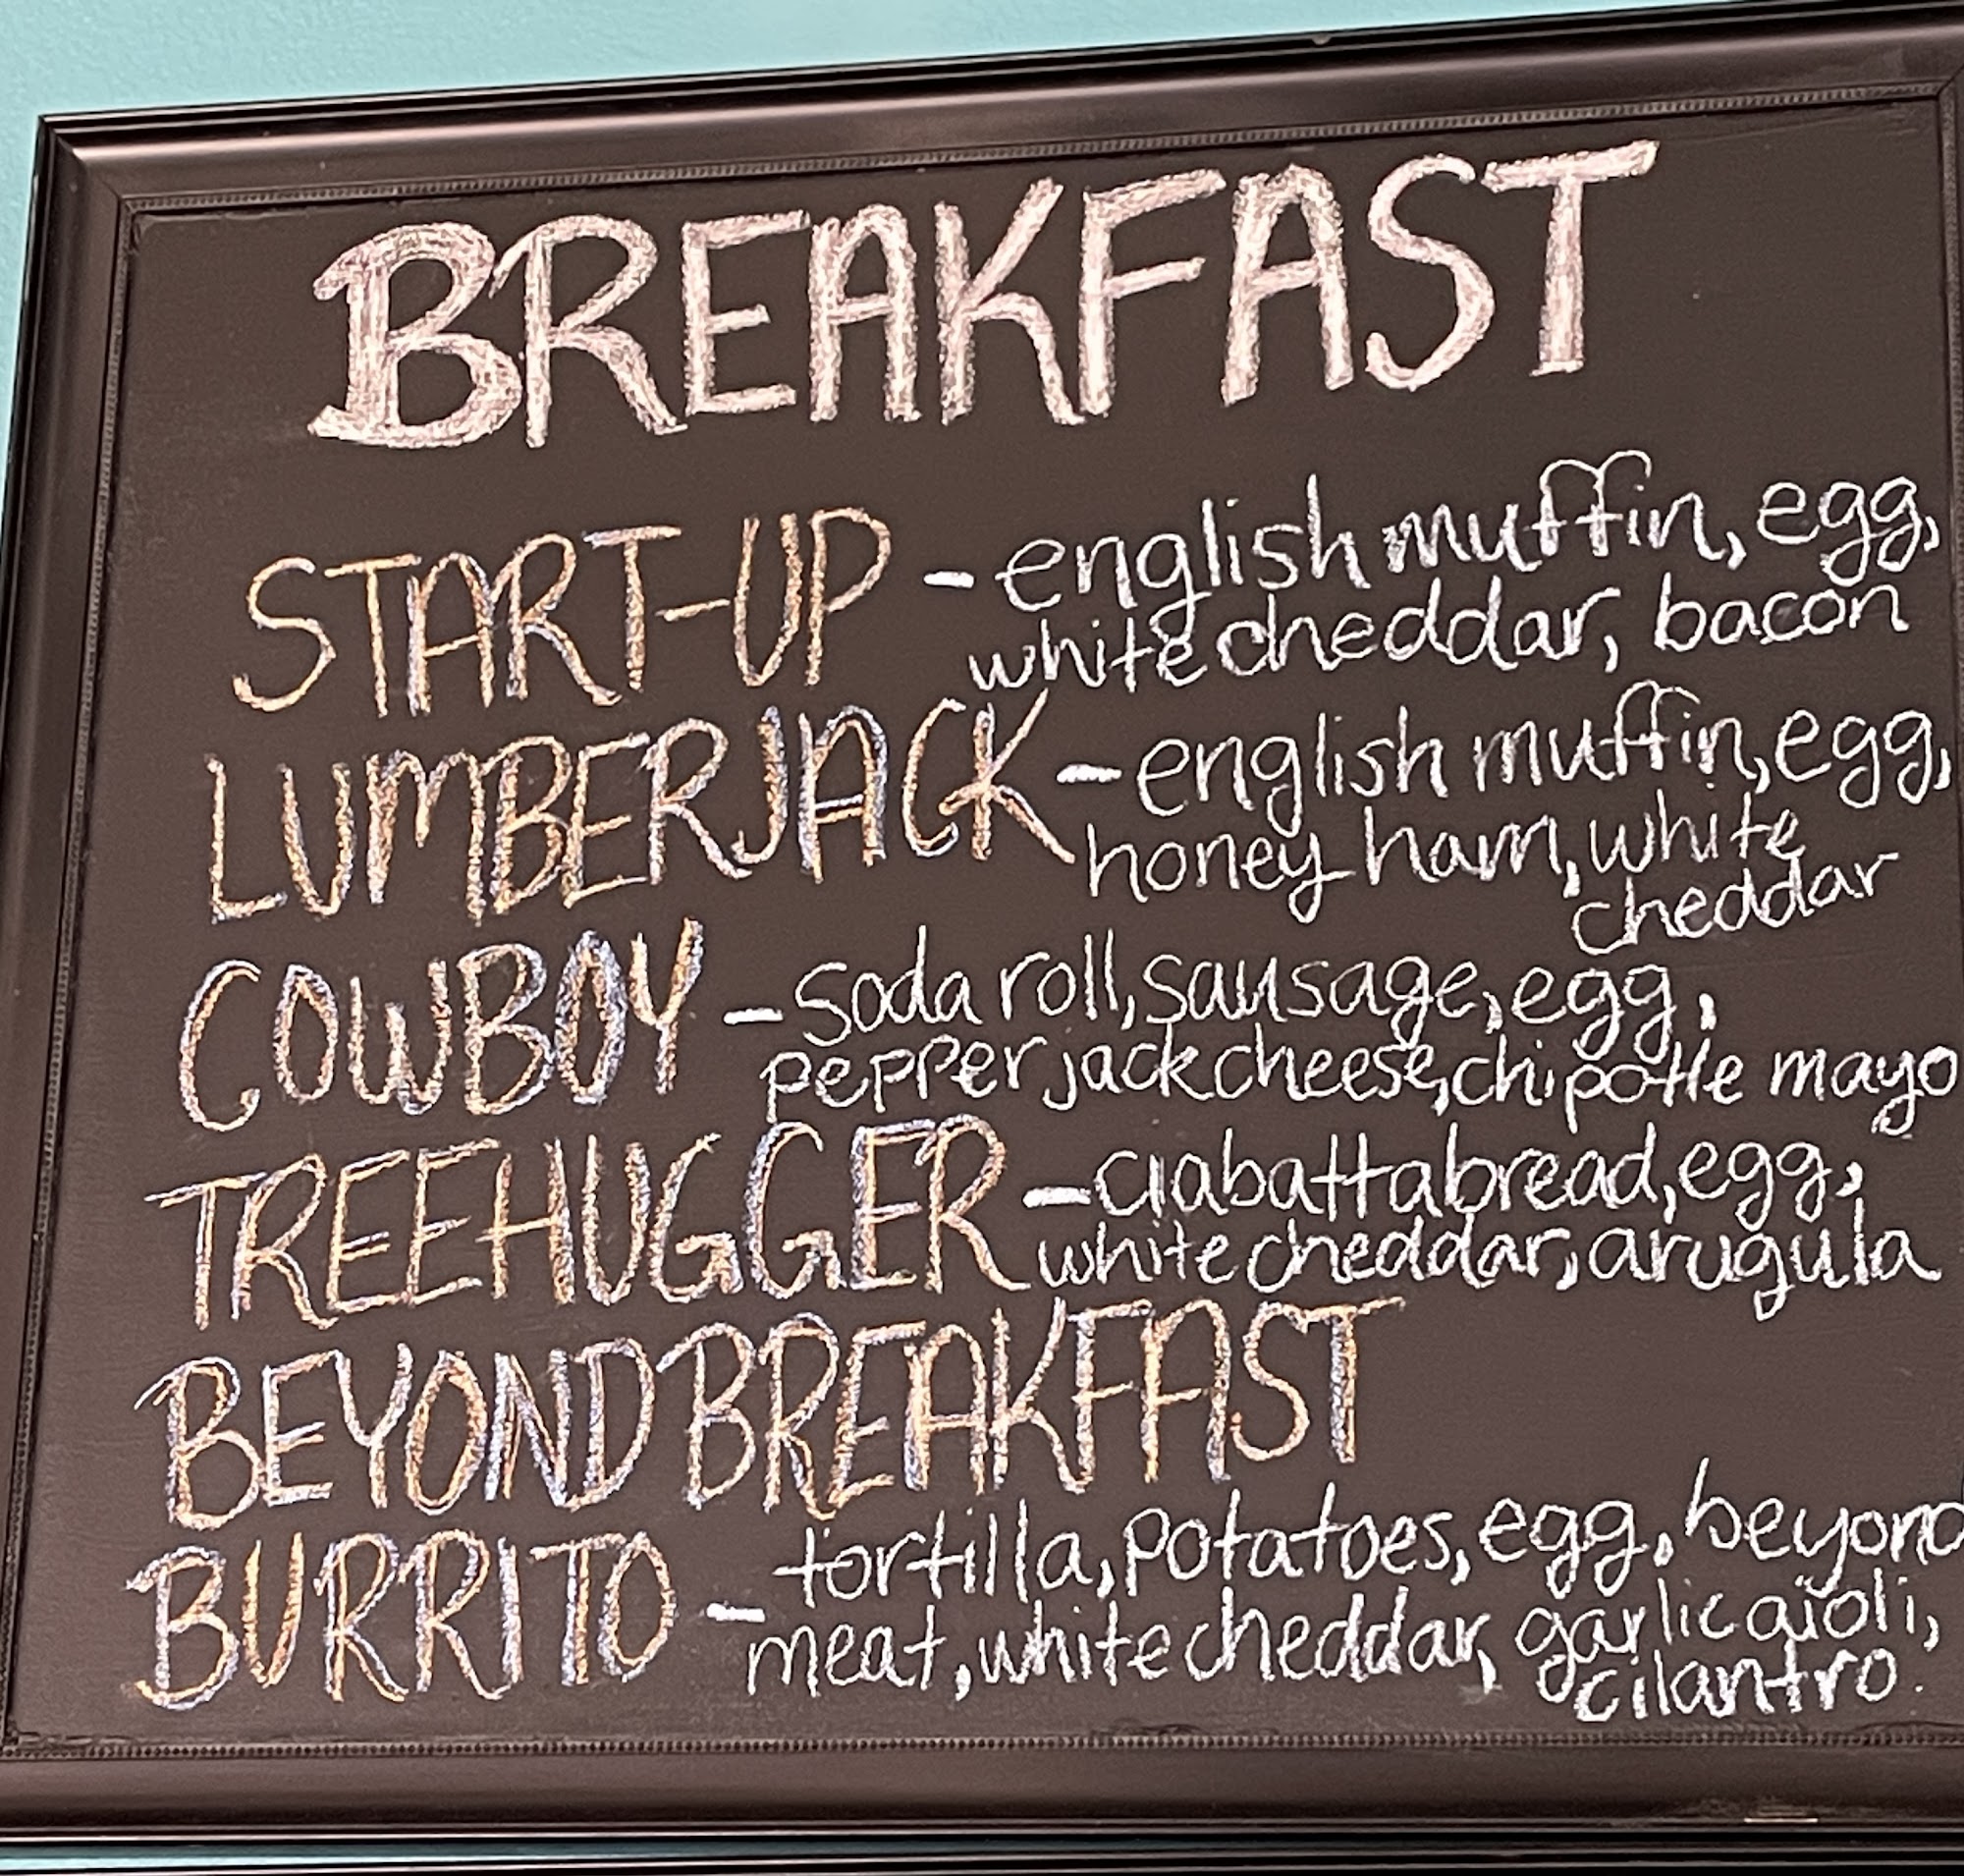 BREAKFAST
START-UP - english muffin, egg,
white cheddar, bacon
LUMBERJACK - english muffin, egg,
honey ham, white
cheddar
COWBOY - soda roll, sausage, egg,
pepper jack cheese, chipotle mayo
TREEHUGGER - ciabatta bread, egg,
white cheddar, arugula
BEYOND BREAKFAST
BURRITO - tortilla, potatoes, egg, beyond
meat, white cheddar, garlic aioli,
cilantro.